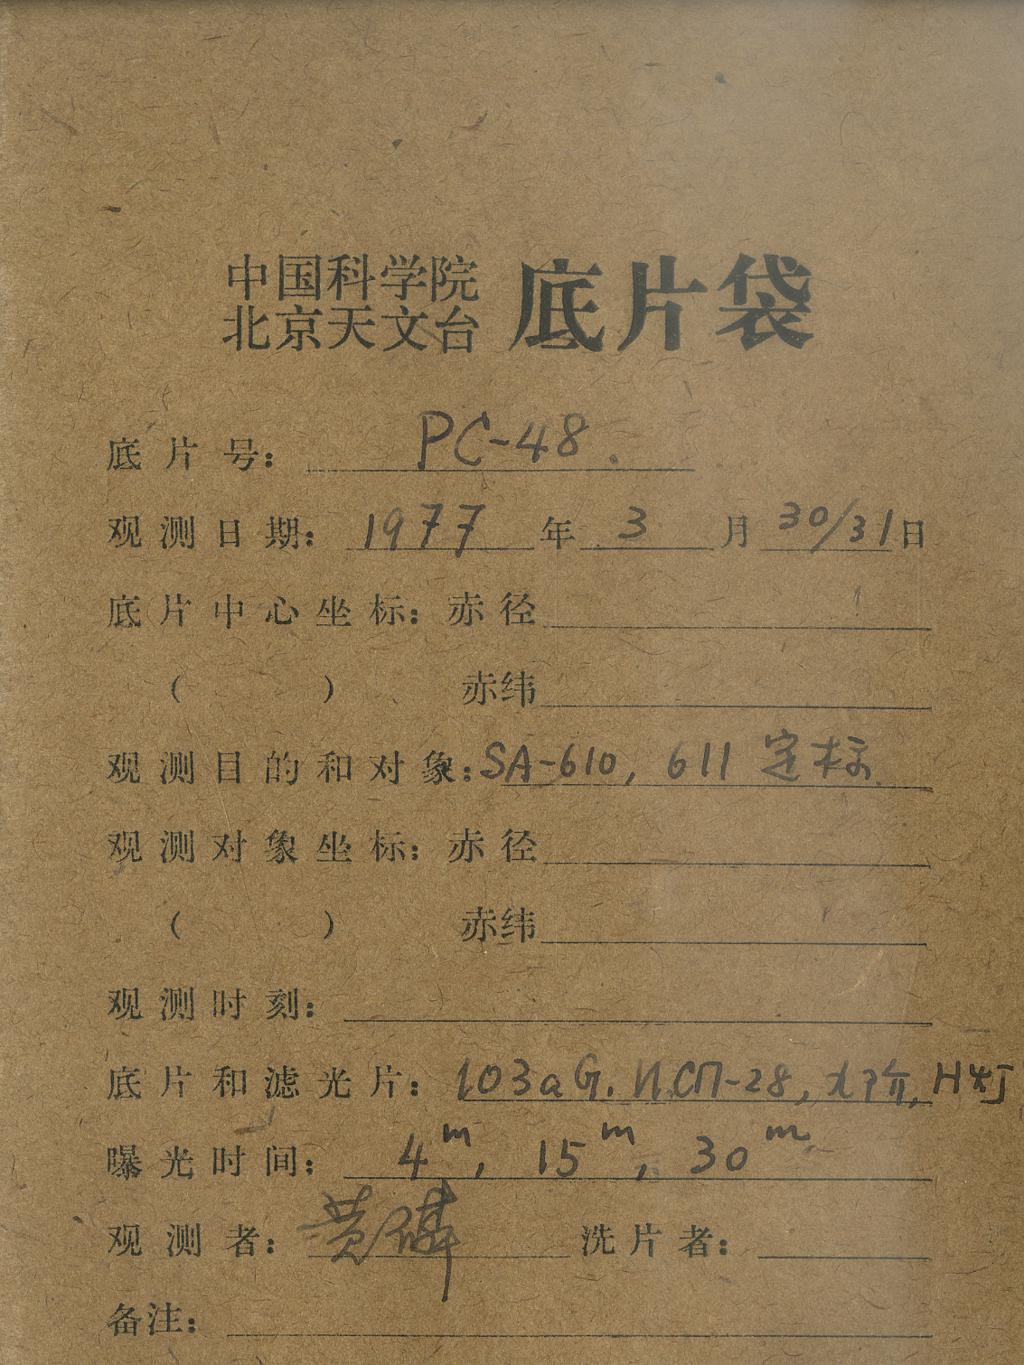 中国科学院
北京天文台 底片袋
底片号: PC-48.
观测日期: 1977 年 3 月 30/31 日
底片中心坐标: 赤径
( ) 赤纬
观测目的和对象: SA-610, 611 定标
观测对象坐标: 赤径
( ) 赤纬
观测时刻:
底片和滤光片: 103aG. ИСП-28, H灯
曝光时间: 4m, 15m, 30m
观测者: 黄磷 洗片者:
备注: